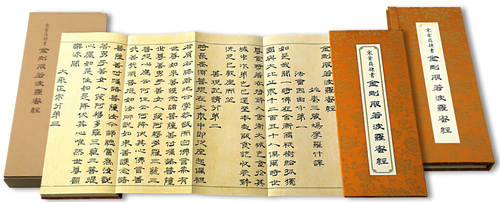 金剛般若波羅蜜經
金剛般若波羅蜜經
金剛般若波羅蜜經
金剛般若波羅蜜經
秦三藏鳩摩羅什譯
法會因由分第一
如是我聞一時佛在舍衛國祇樹給孤獨
園與大比丘眾千二百五十人俱爾時世
尊食時著衣持鉢入舍衛大城乞食於其
城中次第乞已還至本處飯食訖收衣鉢
洗足已敷座而坐
善現起請分第二
時長老須菩提在大眾中即從座起偏袒
右肩右膝著地合掌恭敬而白佛言希有
世尊如來善護念諸菩薩善付囑諸菩薩
世尊善男子善女人發阿耨多羅三藐三
菩提心應云何住云何降伏其心佛言善
哉善哉須菩提如汝所說如來善護念諸
菩薩善付囑諸菩薩汝今諦聽當為汝說
善男子善女人發阿耨多羅三藐三菩提
心應如是住如是降伏其心唯然世尊願
樂欲聞
大乘正宗分第三